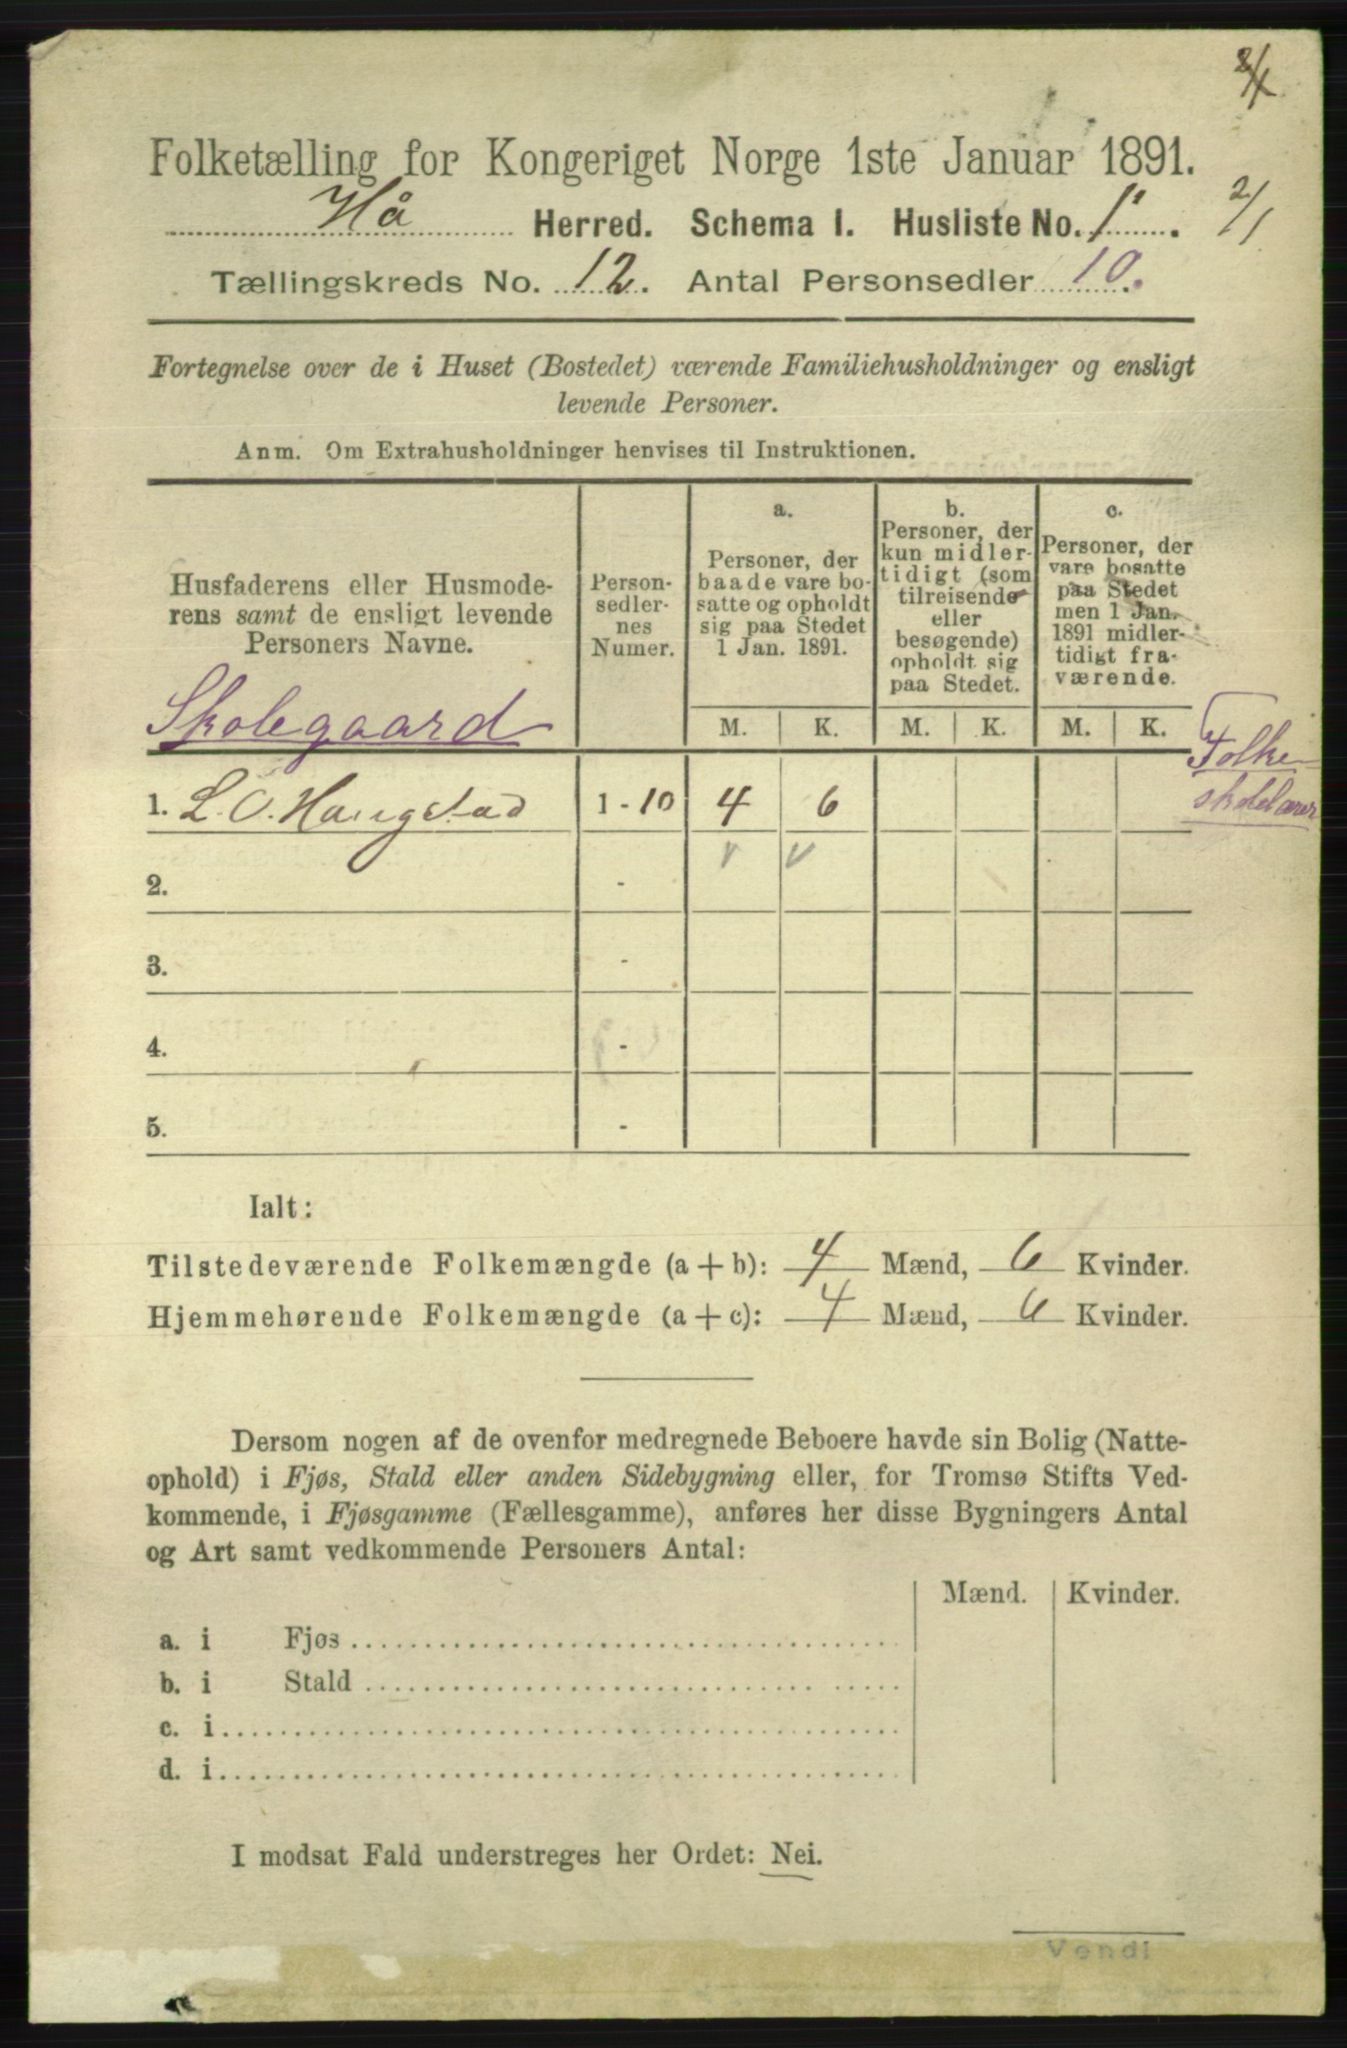 2/1
Folketælling for Kongeriget Norge 1ste Januar 1891.
Hå Herred. Schema I. Husliste No. 1. 2/1
Tællingskreds No. 12. Antal Personsedler 10.
Fortegnelse over de i Huset (Bostedet) værende Familiehusholdninger og ensligt
levende Personer.
Anm. Om Extrahusholdninger henvises til Instruktionen.
Husfaderens eller Husmode-
rens samt de ensligt levende
Personers Navne.
Skolegaard
Person-
sedler-
nes
Numer.
a.
Personer, der
baade vare bo-
satte og opholdt
sig paa Stedet
1 Jan. 1891.
b.
Personer, der
kun midler-
tidigt (som
tilreisende
eller
besøgende)
opholdt sig
paa Stedet.
c.
Personer, der
vare bosatte
paa Stedet
men 1 Jan.
1891 midler-
tidigt fra-
værende.
M. K. M. K. M. K.
Folke
skolelærer
1. L. O. Haugstad 1 - 10 4 6
2. -
3. -
4. -
5. -
Ialt:
Tilstedeværende Folkemængde (a + b): 4 Mænd, 6 Kvinder.
Hjemmehørende Folkemængde (a + c): 4 Mænd, 6 Kvinder.
Dersom nogen af de ovenfor medregnede Beboere havde sin Bolig (Natte-
ophold) i Fjøs, Stald eller anden Sidebygning eller, for Tromsø Stifts Ved-
kommende, i Fjøsgamme (Fællesgamme), anføres her disse Bygningers Antal
og Art samt vedkommende Personers Antal:
Mænd. Kvinder.
a. i Fjøs
b. i Stald
c. i
d. i
I modsat Fald understreges her Ordet: Nei.
Vend!